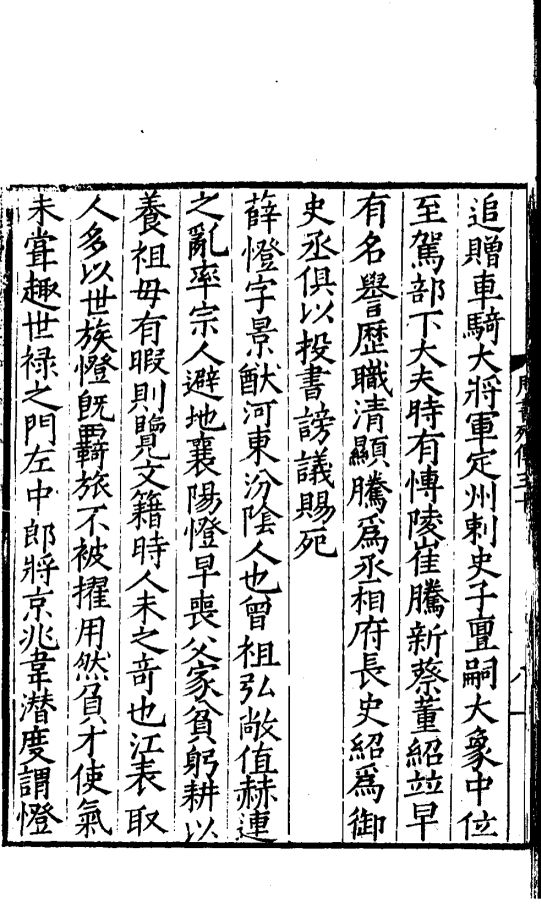 追贈車騎大將軍定州刺史子亶嗣大象中位
至駕部下大夫時有慱陵崔騰新蔡董紹竝早
有名譽歷職清顯騰爲丞相府長史紹爲御
史丞俱以投書謗議賜死
薛憕字景猷河東汾陰人也曾祖弘敞值赫連
之亂率宗人避地襄陽憕早喪父家貧躬耕以
養祖母有暇則覽文籍時人未之竒也江表取
人多以世族憕旣羇旅不被擢用然負才使氣
未甞趣世禄之門左中郎將京兆韋潜度謂憕